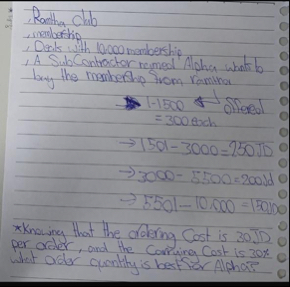 . Ramtha Club
. membership
. Deals with 10.000 membership
. A SubContractor named Alpha wants to
buy the membership from ramtha
→ 1-1500 ← offered
= 300 each
→ 1501 - 3000 = 250 JD
→ 3000 - 5500 = 200 Jd
→ 5501 - 10.000 = 150 JD
*Knowing that the ordering Cost is 30 JD
per order, and the Carrying Cost is 30%
what order quantity is best for Alpha?